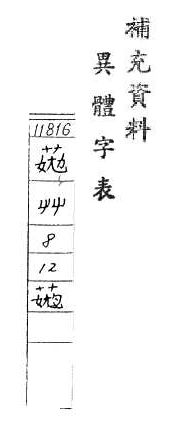 補充資料
異體字表
11816
艸
8
12